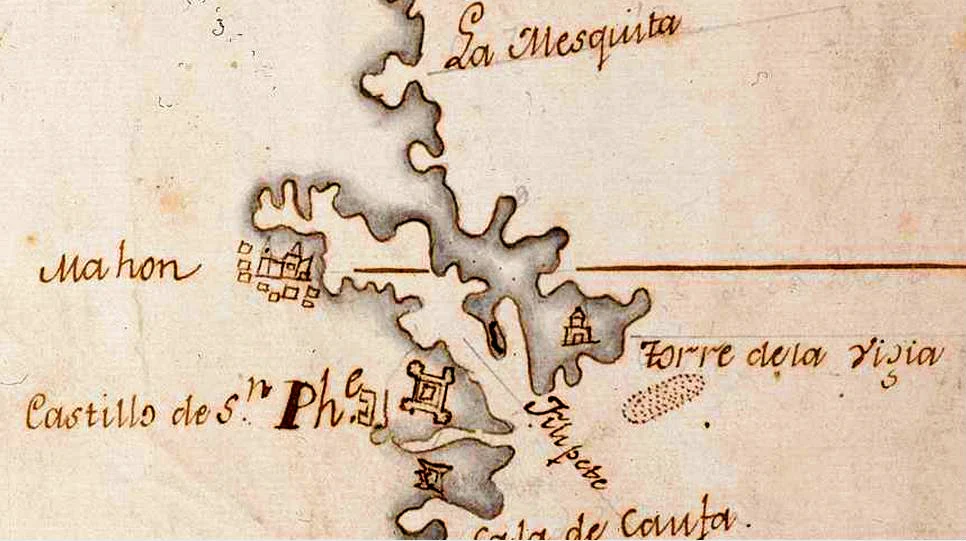 3
La Mesquita
Mahon
Torre de la vigia
Castillo de S.n Phe.
Filipete
Cala de Caufa.